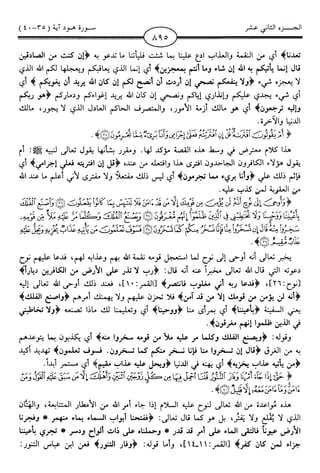 الجـــزء الثاني عشر
سـورة هـود آية (٣٥-٤٠)
٨٩٥
تعدنا﴾ أي من النقمة والعذاب ادع علينا بما شئت فليأتنا ما تدعو به ﴿إن كنت من الصادقين
قال إنما يأتيكم به الله إن شاء وما أنتم بمعجزين﴾ أي إنما الذي يعاقبكم ويعجلها لكم الله الذي
لا يعجزه شيء ﴿ولا ينفعكم نصحي إن أردت أن أنصح لكم إن كان الله يريد أن يغويكم﴾ أي
أي شيء يجدي عليكم وإنذاري إياكم ونصحي إن كان الله يريد إغواءكم ودماركم ﴿هو ربكم
وإليه ترجعون﴾ أي هو مالك أزمة الأمور، والمتصرف الحاكم العادل الذي لا يجور، مالك
الدنيا والآخرة.
﴿أَمْ يَقُولُونَ افْتَرَاهُ قُلْ إِنِ افْتَرَيْتُهُ فَعَلَيَّ إِجْرَامِي وَأَنَا بَرِيءٌ مِمَّا تُجْرِمُونَ﴾.
هذا كلام معترض في وسط هذه القصة مؤكد لها. ومقرر بشأنها يقول تعالى لنبيه ﷺ: أم
يقول هؤلاء الكافرون الجاحدون افترى هذا وافتعله من عنده ﴿قل إن افتريته فعلي إجرامي﴾ أي
فإثم ذلك علي ﴿وأنا بريء مما تجرمون﴾ أي ليس ذلك مفتعلاً ولا مفترى لأني أعلم ما عند الله
من العقوبة لمن كذب عليه.
﴿وَأُوحِيَ إِلَى نُوحٍ أَنَّهُ لَنْ يُؤْمِنَ مِنْ قَوْمِكَ إِلَّا مَنْ قَدْ آمَنَ فَلَا تَبْتَئِسْ بِمَا كَانُوا يَفْعَلُونَ وَاصْنَعِ الْفُلْكَ
بِأَعْيُنِنَا وَوَحْيِنَا وَلَا تُخَاطِبْنِي فِي الَّذِينَ ظَلَمُوا إِنَّهُمْ مُغْرَقُونَ وَيَصْنَعُ الْفُلْكَ وَكُلَّمَا مَرَّ عَلَيْهِ مَلَأٌ مِنْ قَوْمِهِ
سَخِرُوا مِنْهُ قَالَ إِنْ تَسْخَرُوا مِنَّا فَإِنَّا نَسْخَرُ مِنْكُمْ كَمَا تَسْخَرُونَ فَسَوْفَ تَعْلَمُونَ مَنْ يَأْتِيهِ عَذَابٌ يُخْزِيهِ وَيَحِلُّ عَلَيْهِ
عَذَابٌ مُقِيمٌ﴾.
يخبر تعالى أنه أوحى إلى نوح لما استعجل قومه نقمة الله بهم وعذابه لهم، فدعا عليهم نوح
دعوته التي قال الله تعالى مخبراً عنه أنه قال: ﴿رب لا تذر على الأرض من الكافرين دياراً﴾
[نوح:٢٦]، ﴿فدعا ربه أني مغلوب فانتصر﴾ [القمر:١٠]، فعند ذلك أوحى الله تعالى إليه
﴿أنه لن يؤمن من قومك إلا من قد آمن﴾ فلا تحزن عليهم ولا يهمنك أمرهم ﴿واصنع الفلك﴾
يعني السفينة ﴿بأعيننا﴾ أي بمرأى منا ﴿ووحينا﴾ أي وتعليمنا لك ماذا تصنعه ﴿ولا تخاطبني
في الذين ظلموا إنهم مغرقون﴾.
وقوله: ﴿ويصنع الفلك وكلما مر عليه ملأ من قومه سخروا منه﴾ أي يكذبون بما يتوعدهم
به من الغرق ﴿قال إن تسخروا منا فإنا نسخر منكم كما تسخرون. فسوف تعلمون﴾ تهديد أكيد
﴿من يأتيه عذاب يخزيه﴾ أي يهنه في الدنيا ﴿ويحل عليه عذاب مقيم﴾ أي مستمر أبداً.
﴿حَتَّى إِذَا جَاءَ أَمْرُنَا وَفَارَ التَّنُّورُ قُلْنَا احْمِلْ فِيهَا مِنْ كُلٍّ زَوْجَيْنِ اثْنَيْنِ وَأَهْلَكَ إِلَّا مَنْ سَبَقَ عَلَيْهِ الْقَوْلُ وَمَنْ
آمَنَ وَمَا آمَنَ مَعَهُ إِلَّا قَلِيلٌ﴾.
هذه مُواعدة من الله تعالى لنوح عليه السلام إذا جاء أمر الله من الأمطار المتتابعة، والهتَّان
الذي لا يُقْلِع ولا يَفتُر، بل هو كما قال تعالى: ﴿ففتحنا أبواب السماء بماء منهمر * وفجرنا
الأرض عيوناً فالتقى الماء على أمر قد قدر * وحملناه على ذات ألواح ودسر * تجري بأعيننا
جزاء لمن كان كفر﴾ [القمر:١١-١٤]، وأما قوله: ﴿وفار التنور﴾ فعن ابن عباس التنور: